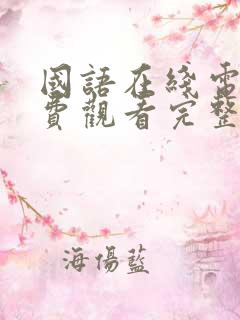 國語在綫電
費觀看完整
海傷藍